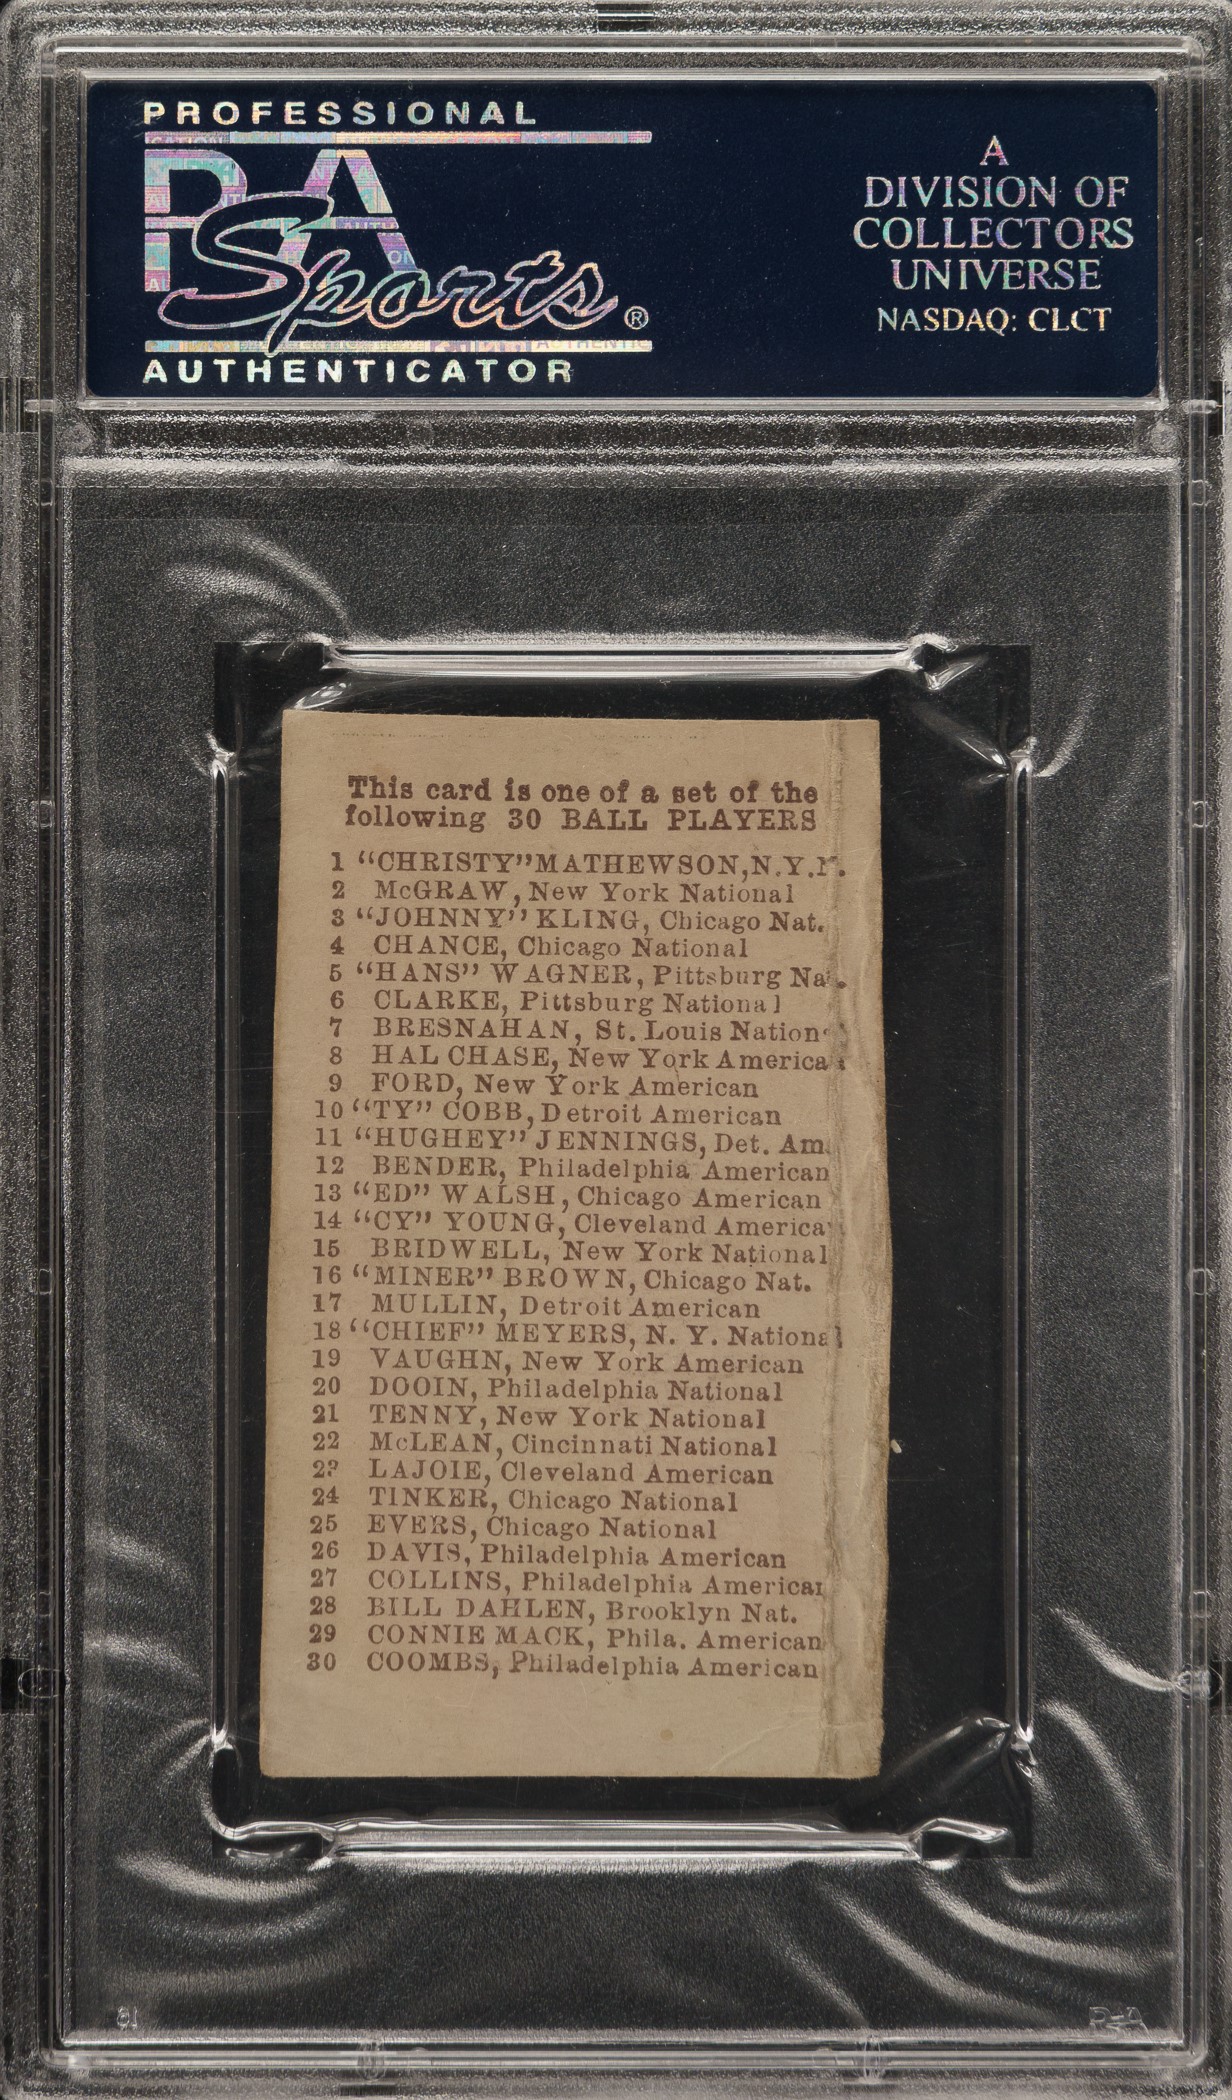 PROFESSIONAL
PSA
Sports®
AUTHENTICATOR
A
DIVISION OF
COLLECTORS
UNIVERSE
NASDAQ: CLCT
This card is one of a set of the
following 30 BALL PLAYERS
1 "CHRISTY" MATHEWSON, N.Y.N.
2 McGRAW, New York National
3 "JOHNNY" KLING, Chicago Nat.
4 CHANCE, Chicago National
5 "HANS" WAGNER, Pittsburg Nat.
6 CLARKE, Pittsburg National
7 BRESNAHAN, St. Louis Nation
8 HAL CHASE, New York America
9 FORD, New York American
10 "TY" COBB, Detroit American
11 "HUGHEY" JENNINGS, Det. Am.
12 BENDER, Philadelphia American
13 "ED" WALSH, Chicago American
14 "CY" YOUNG, Cleveland America
15 BRIDWELL, New York National
16 "MINER" BROWN, Chicago Nat.
17 MULLIN, Detroit American
18 "CHIEF" MEYERS, N. Y. National
19 VAUGHN, New York American
20 DOOIN, Philadelphia National
21 TENNY, New York National
22 McLEAN, Cincinnati National
23 LAJOIE, Cleveland American
24 TINKER, Chicago National
25 EVERS, Chicago National
26 DAVIS, Philadelphia American
27 COLLINS, Philadelphia American
28 BILL DAHLEN, Brooklyn Nat.
29 CONNIE MACK, Phila. American
30 COOMBS, Philadelphia American
PSA